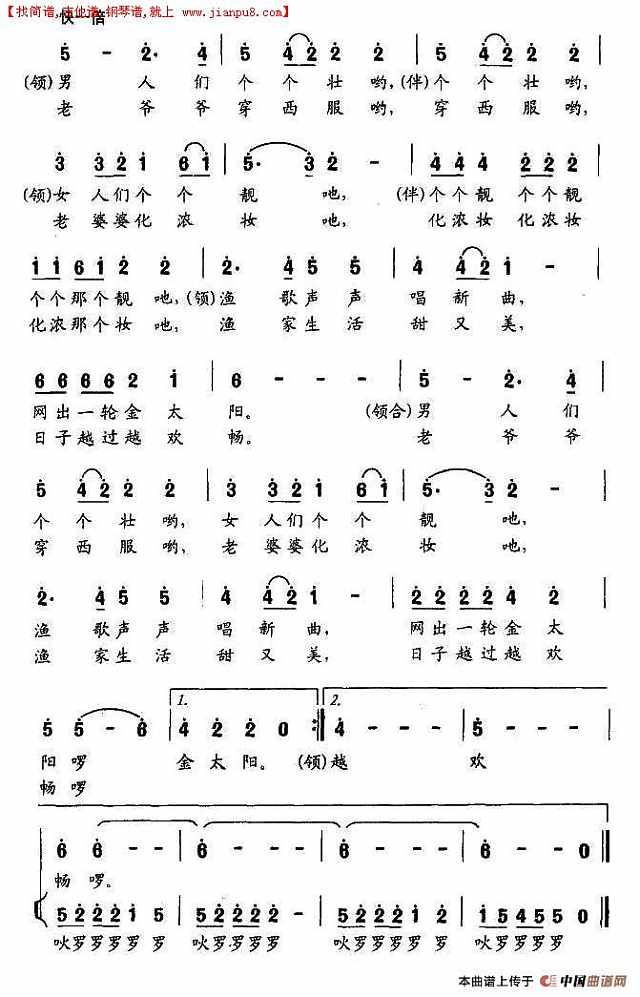 【找简谱,吉他谱,钢琴谱,就上 www.jianpu8.com】
快一倍
5 - 2· 4 | 5 4 2 2 | 5 4 2 2 |
(领)男 人 们 个 个 壮 哟,(伴)个 个 壮 哟,
老 爷 爷 穿 西 服 哟, 穿 西 服 哟,
3 3 2 1 6 1 | 5· 3 2 - | 4 4 4 2 2 2 |
(领)女 人们 个 个 靓 吔, (伴)个个靓 个个靓
老 婆婆 化 浓 妆 吔, 化浓妆 化浓妆
1 1 6 1 2 2 | 2· 4 5 5 | 4 4 2 1 - |
个个那个靓 吔,(领)渔 歌 声 声 唱 新 曲,
化浓那个妆 吔, 渔 家 生 活 甜 又 美,
6 6 6 6 2 1 | 6 - - - | 5 - 2· 4 |
网出一轮金 太 阳。 (领合)男 人 们
日子越过越 欢 畅。 老 爷 爷
5 4 2 2 2 | 3 3 2 1 6 1 | 5· 3 2 - |
个 个 壮 哟, 女 人们 个 个 靓 吔,
穿 西 服 哟, 老 婆婆 化 浓 妆 吔,
2· 4 5 5 | 4 4 2 1 - | 2 2 2 2 4 2 |
渔 歌 声 声 唱 新 曲, 网出一轮金 太
渔 家 生 活 甜 又 美, 日子越过越 欢
1. 2.
5 5 - 6 | 4 2 2 0 :| 4 - - - | 5 - - - |
阳 啰 金 太 阳。 (领)越 欢
畅 啰
6 6 - - | 6 - - - | 6 - - - | 6 - - 0 |
畅 啰。
5 2 2 2 1 5 | 5 2 2 2 2 - | 5 2 2 2 1 2 | 1 5 4 5 5 0 |
吙罗罗罗罗 罗 吙罗罗罗罗 吙罗罗罗罗 罗 吙罗罗罗罗
本曲谱上传于 中国曲谱网